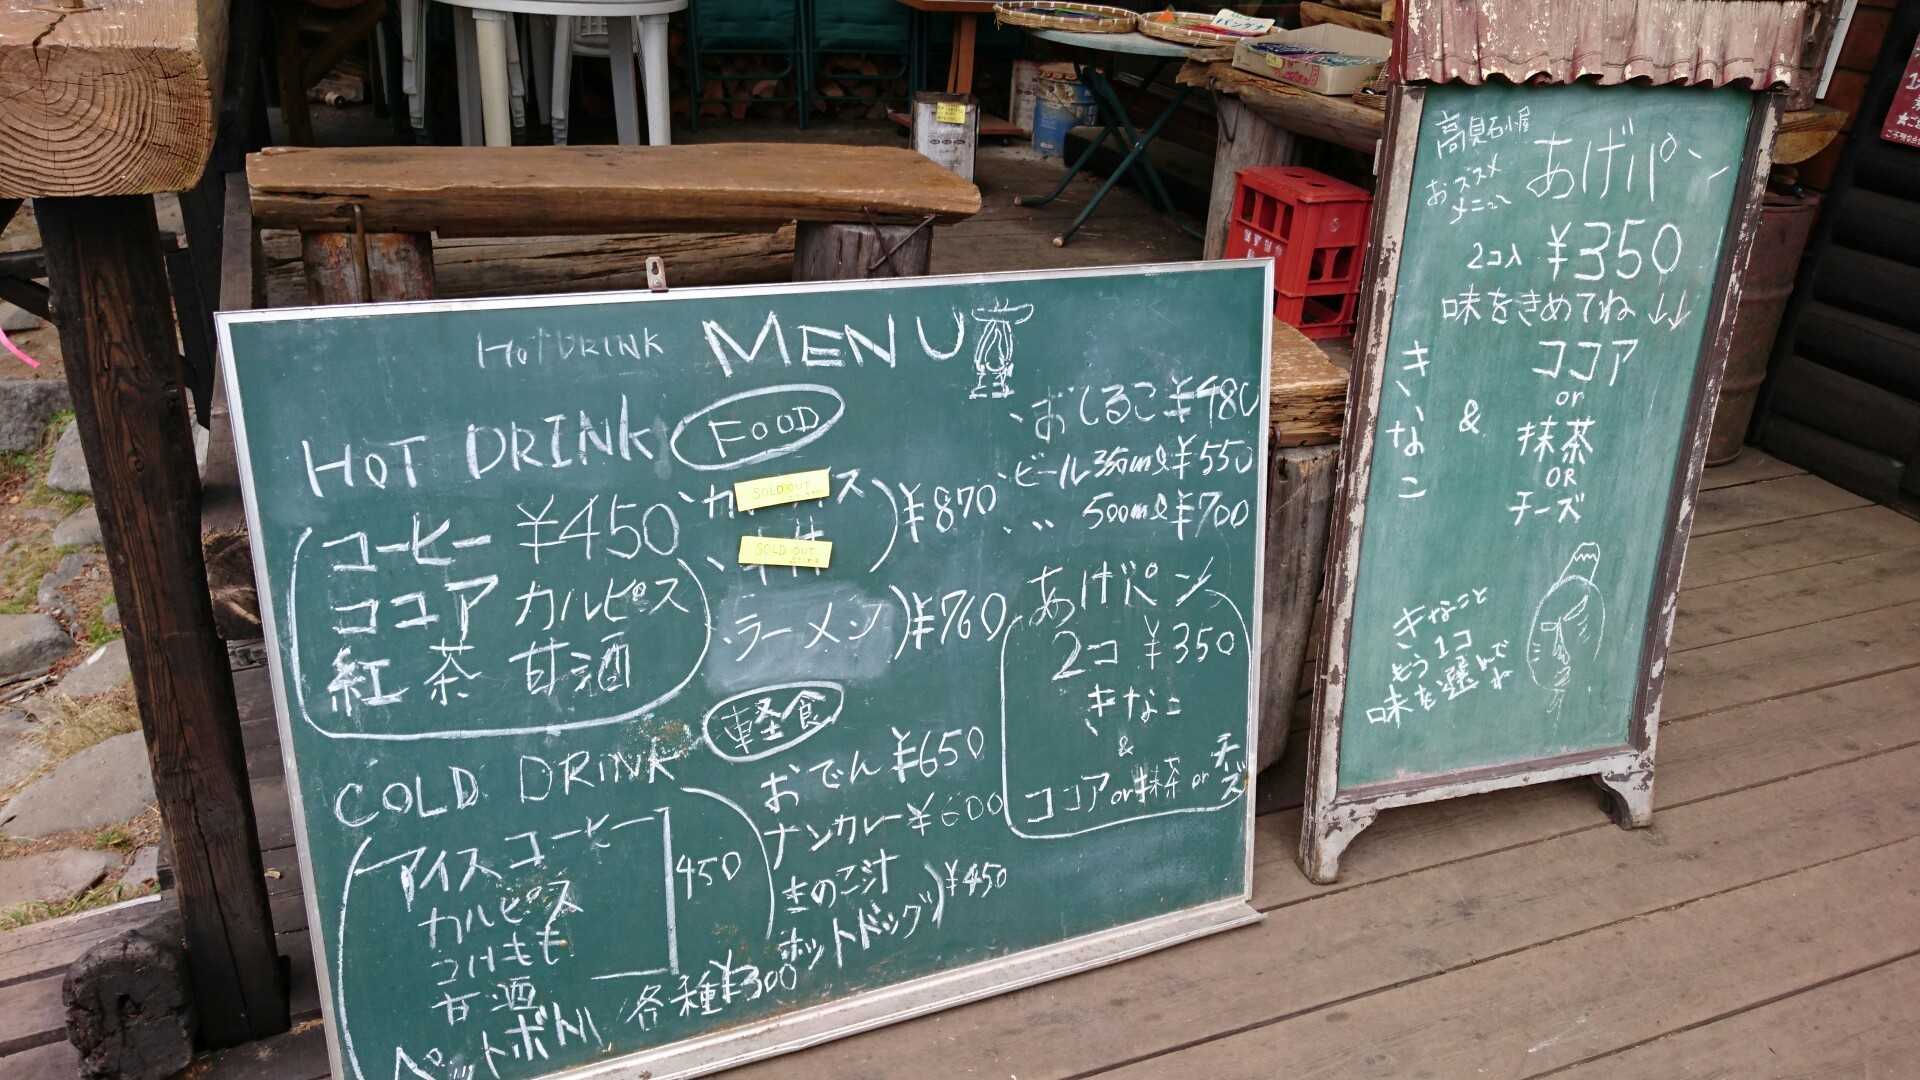 HOT DRINK
MENU
HOT DRINK
コーヒー ¥450
ココア カルピス
紅茶 甘酒
COLD DRINK
アイスコーヒー
カルピス
こけもも
甘酒
450
ペットボトル 各種¥300
FOOD
SOLD OUT
SOLD OUT
¥870
・ラーメン ¥760
軽食
おでん ¥650
ナンカレー ¥600
きのこ汁
ホットドッグ ¥450
おしるこ ¥480
ビール 350ml ¥550
500ml ¥700
あげパン
2コ ¥350
きなこ
&
ココア or 抹茶 or チーズ
高見石小屋
おススメ
メニュー
あげパン
2コ入 ¥350
味をきめてね ↓↓
きなこ
&
ココア
or
抹茶
OR
チーズ
きなこと
もう1コ
味を選んで
ね